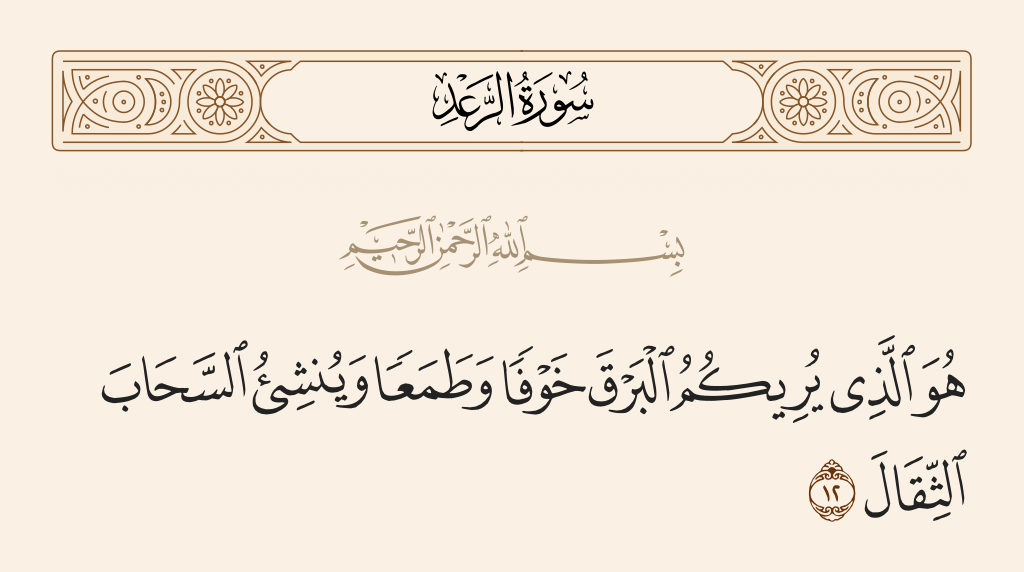 سُورَةُ الرَّعْدِ
بِسْمِ ٱللَّهِ ٱلرَّحْمَٰنِ ٱلرَّحِيمِ
هُوَ ٱلَّذِى يُرِيكُمُ ٱلْبَرْقَ خَوْفًا وَطَمَعًا وَيُنشِئُ ٱلسَّحَابَ
ٱلثِّقَالَ ١٢